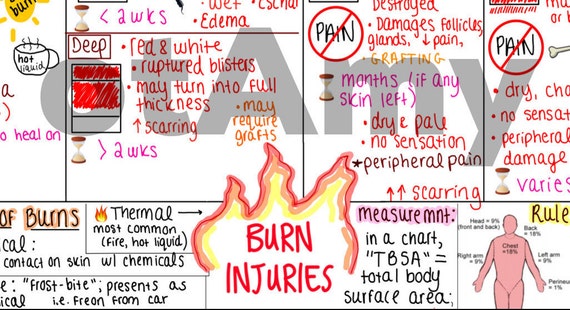 burn
hot
liquid
to heal on
< 2 wks
• wet
Eschar
• Edema
Deep
• red & white
• ruptured blisters
• may turn into full
thickness
↑ scarring
• may
require
grafts
> 2 wks
PAIN
Destroyed
• Damages follicles,
glands, ↓ pain,
• GRAFTING
months (if any
skin left)
• dry & pale
• no sensation
*peripheral pain
↑↑ scarring
PAIN
or b
• dry, cha
• no sensa
• peripheral
damage
varies
otAmy
of Burns
ical:
contact on skin w/ chemicals
e: "frost-bite"; presents as
ical i.e. Freon from car
Thermal
most common
(fire, hot liquid)
BURN
INJURIES
measuremnt:
in a chart,
"TBSA" =
total body
surface area;
Rule
Head = 9%
(front and back)
Back
= 18%
Chest
=18%
Right arm
= 9%
Left arm
= 9%
Perineum
= 1%